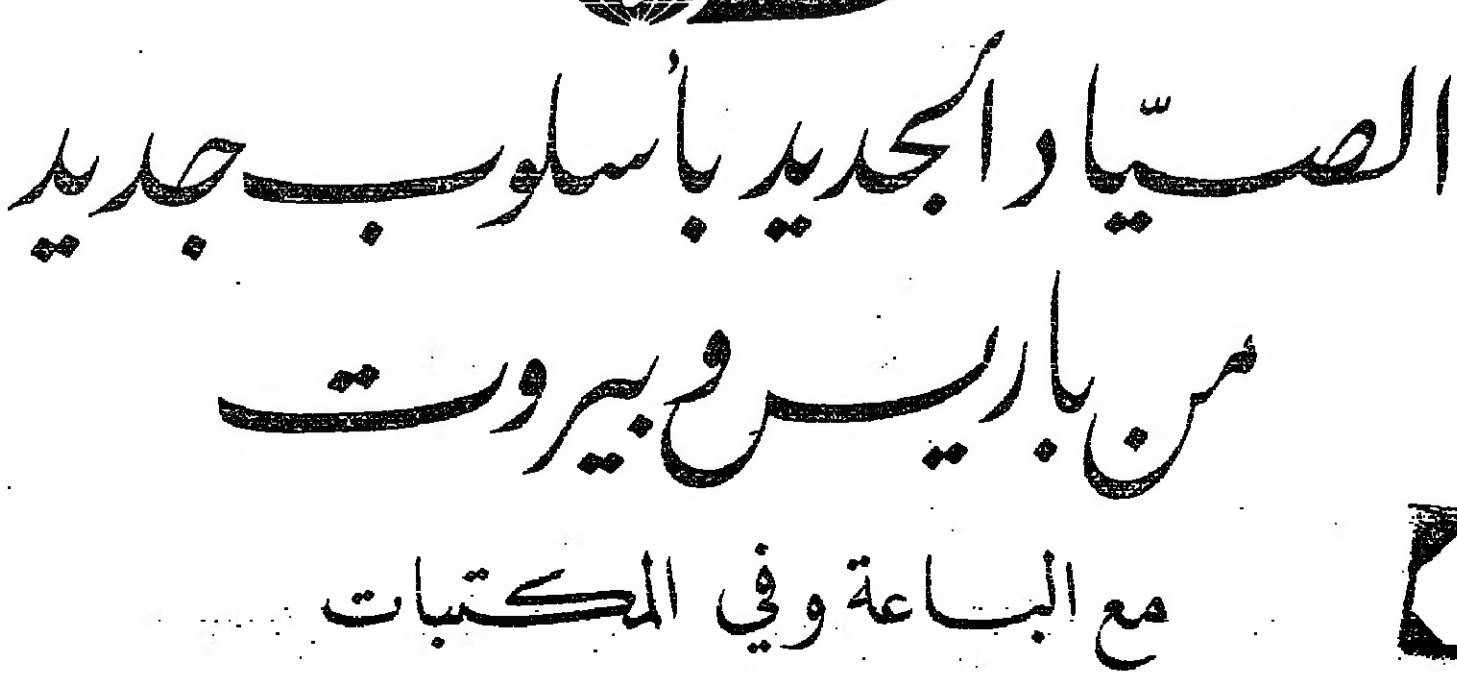 الصيّاد الجديد بأسلوب جديد
من باريس وبيروت
مع الباعة وفي المكتبات